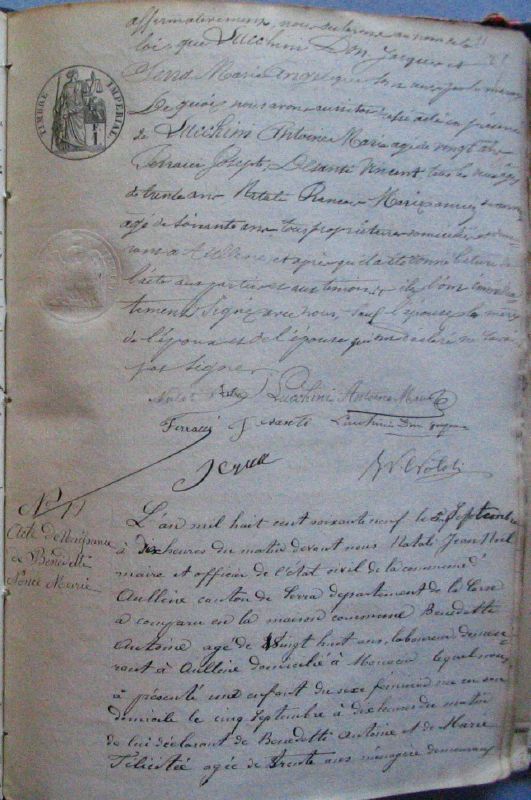 affirmativement, nous au nom de la
loi que Lucchini Don Jacques et
Serra Marie sont unis par le mariage
De quoi nous avons dressé acte en présence
de Lucchini Antoine Marie agé de vingt
Ferracci Joseph, Desanti Vincent tous les deux agés
de trente ans Natali
agé de soixante ans tous propriétaires domiciliés et demeu
rant à Aullene et après qu'il a été donné lecture de
l'acte aux parties et aux témoins ils l'ont
signé avec nous, sauf l'épouse, la mère
de l'époux et de l'épouse qui ont déclaré ne savoir
pas signer
TIMBRE IMPERIAL
Natali Lucchini Antoine Marie
Ferracci J santi Lucchini Don Jacques
Serra Natali
N° 11
Acte de Naissance
de Benedetti
Marie
L'an mil huit cent soixante neuf le 5 Septembre
à dix heures du matin devant nous Natali Jean Noel
maire et officier de l'état civil de la commune d'
Aullene canton de Serra département de la Corse
a comparu en la maison commune Benedetti
Antoine agé de vingt huit ans, laboureur demeu
rant à Aullene domicilié à Monacia lequel nous
à présenté une enfant du sexe féminin né en son
domicile le cinq septembre à dix heures du matin
de lui déclarant de Benedetti Antoine et de Marie
Félicitée agée de trente ans ménagère demeurant